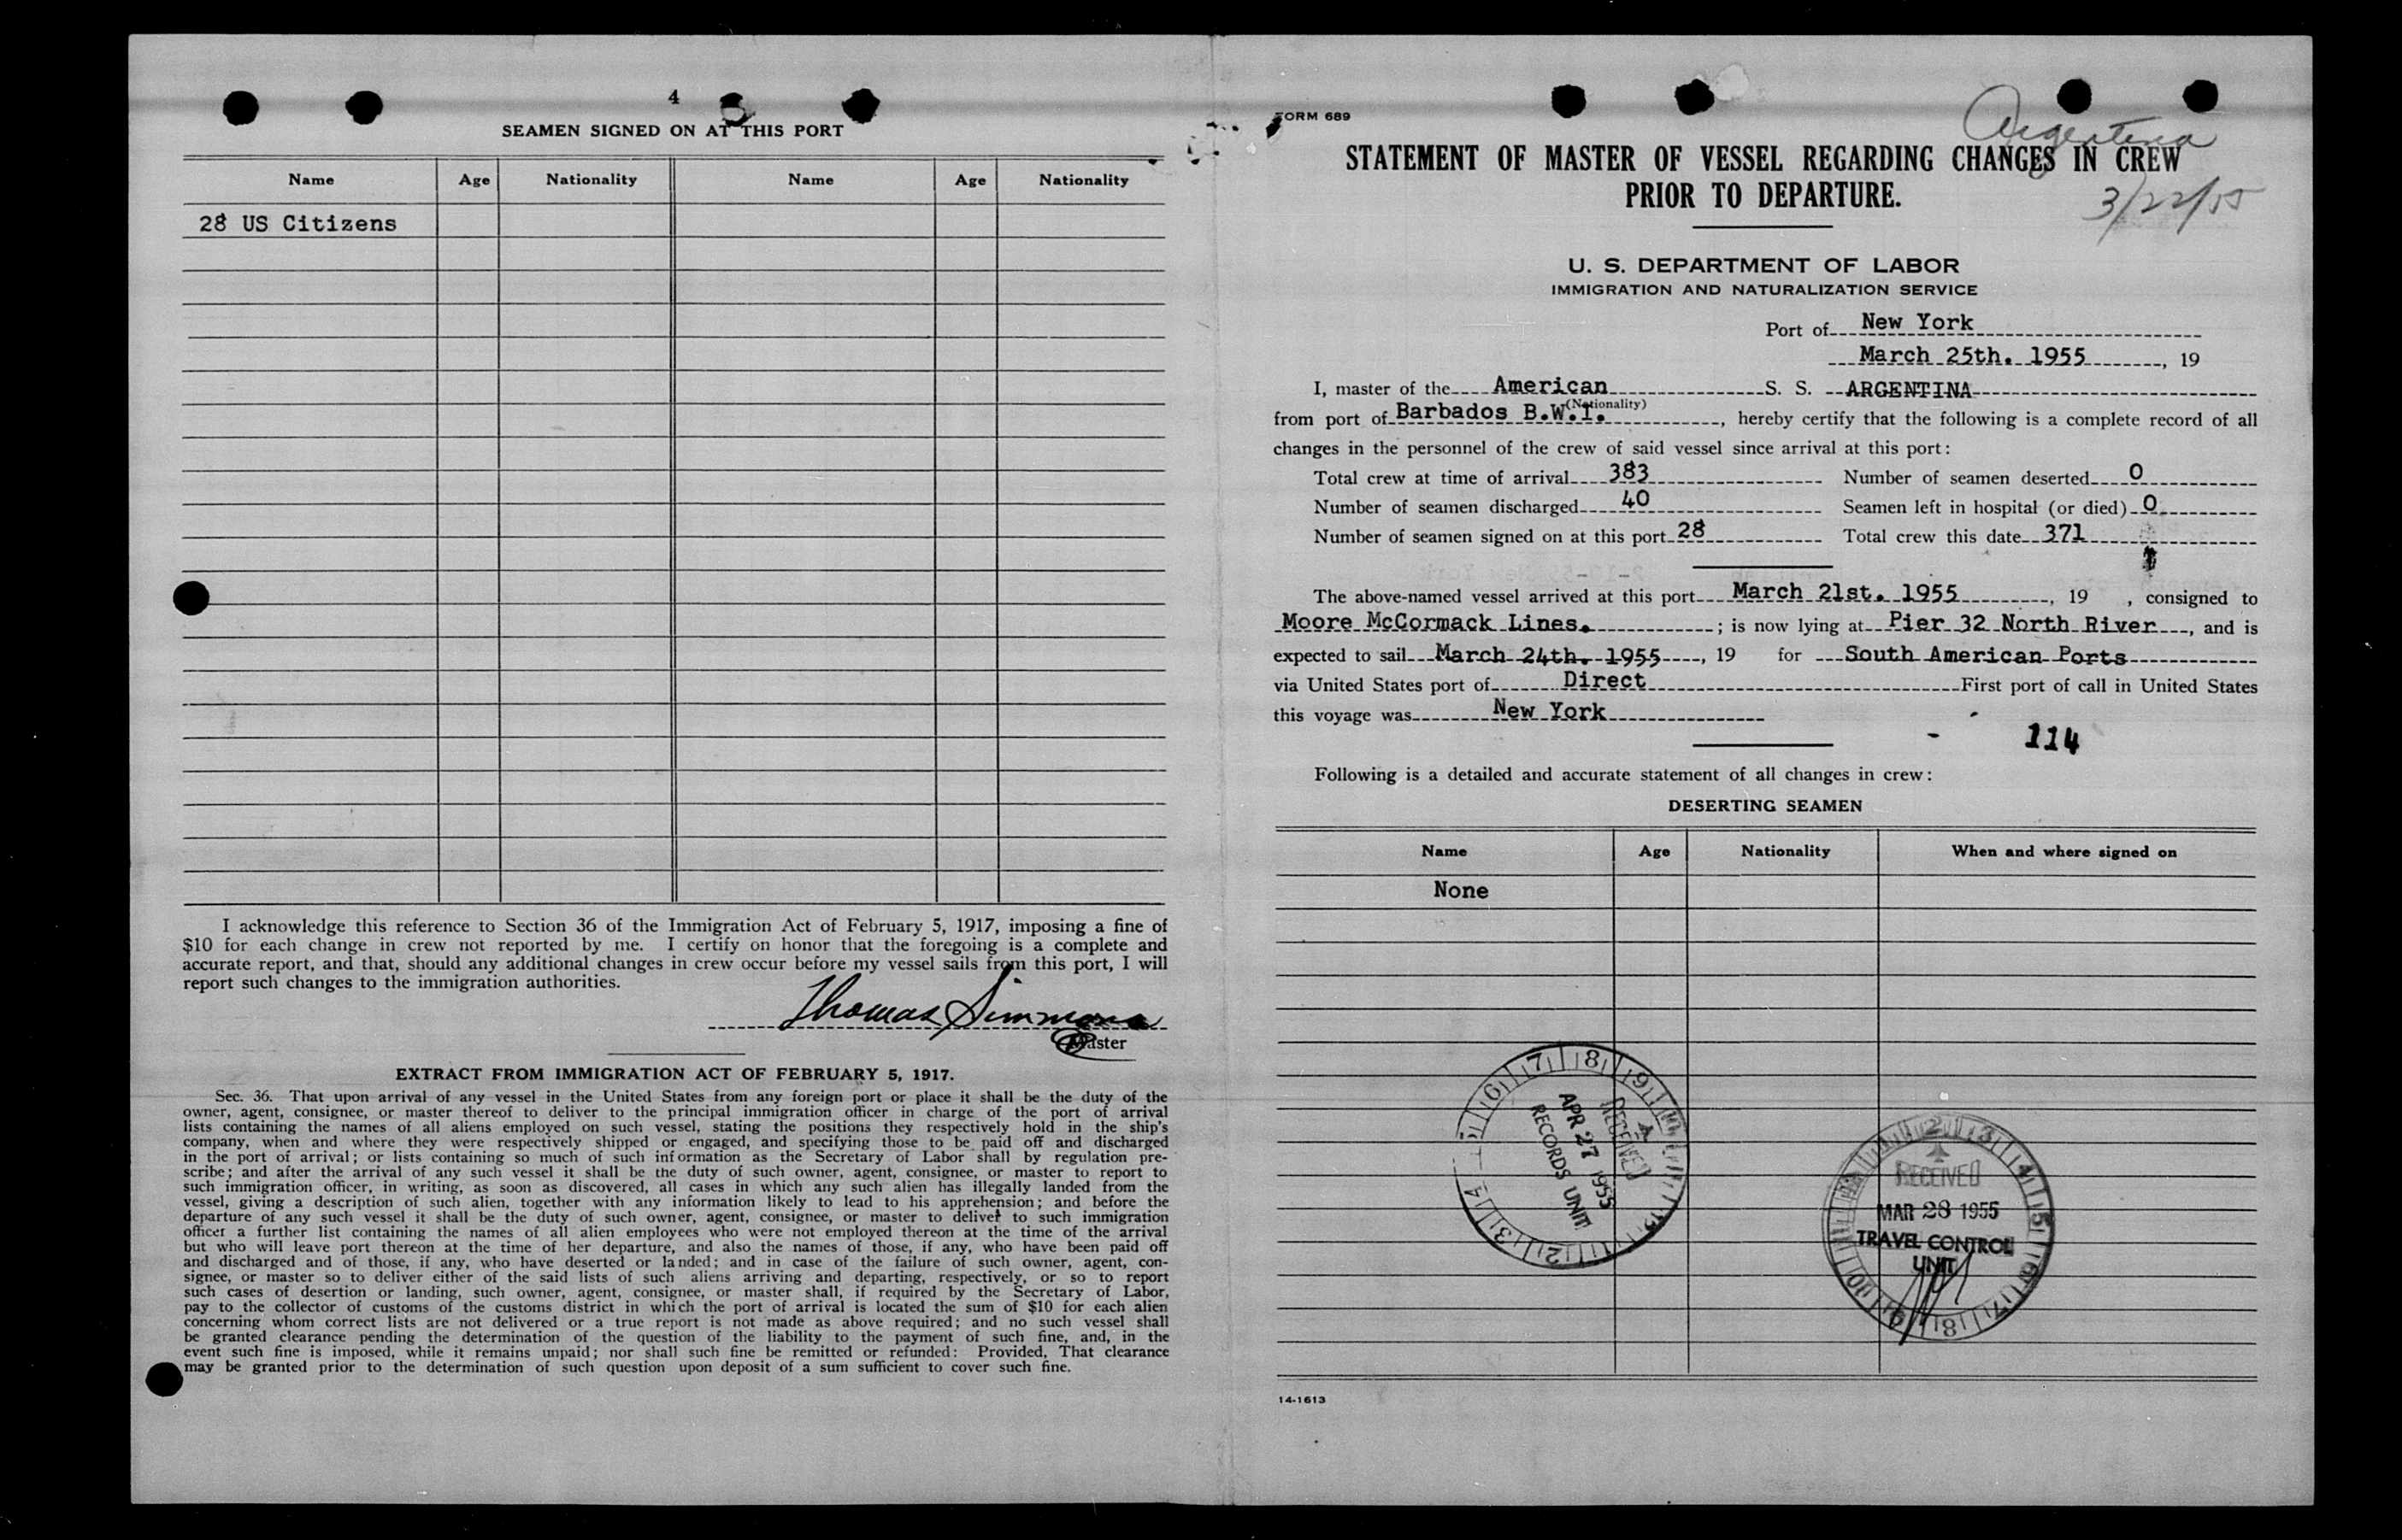 4
SEAMEN SIGNED ON AT THIS PORT
Name Age Nationality Name Age Nationality
28 US Citizens
I acknowledge this reference to Section 36 of the Immigration Act of February 5, 1917, imposing a fine of
$10 for each change in crew not reported by me. I certify on honor that the foregoing is a complete and
accurate report, and that, should any additional changes in crew occur before my vessel sails from this port, I will
report such changes to the immigration authorities.
Thomas Simmons
Master
EXTRACT FROM IMMIGRATION ACT OF FEBRUARY 5, 1917.
Sec. 36. That upon arrival of any vessel in the United States from any foreign port or place it shall be the duty of the
owner, agent, consignee, or master thereof to deliver to the principal immigration officer in charge of the port of arrival
lists containing the names of all aliens employed on such vessel, stating the positions they respectively hold in the ship's
company, when and where they were respectively shipped or engaged, and specifying those to be paid off and discharged
in the port of arrival; or lists containing so much of such information as the Secretary of Labor shall by regulation pre-
scribe; and after the arrival of any such vessel it shall be the duty of such owner, agent, consignee, or master to report to
such immigration officer, in writing, as soon as discovered, all cases in which any such alien has illegally landed from the
vessel, giving a description of such alien, together with any information likely to lead to his apprehension; and before the
departure of any such vessel it shall be the duty of such owner, agent, consignee, or master to deliver to such immigration
officer a further list containing the names of all alien employees who were not employed thereon at the time of the arrival
but who will leave port thereon at the time of her departure, and also the names of those, if any, who have been paid off
and discharged and of those, if any, who have deserted or landed; and in case of the failure of such owner, agent, con-
signee, or master so to deliver either of the said lists of such aliens arriving and departing, respectively, or so to report
such cases of desertion or landing, such owner, agent, consignee, or master shall, if required by the Secretary of Labor,
pay to the collector of customs of the customs district in which the port of arrival is located the sum of $10 for each alien
concerning whom correct lists are not delivered or a true report is not made as above required; and no such vessel shall
be granted clearance pending the determination of the question of the liability to the payment of such fine, and, in the
event such fine is imposed, while it remains unpaid; nor shall such fine be remitted or refunded: Provided, That clearance
may be granted prior to the determination of such question upon deposit of a sum sufficient to cover such fine.
FORM 689
Argentina
STATEMENT OF MASTER OF VESSEL REGARDING CHANGES IN CREW
PRIOR TO DEPARTURE.
3/22/55
U. S. DEPARTMENT OF LABOR
IMMIGRATION AND NATURALIZATION SERVICE
Port of New York
March 25th. 1955, 19
I, master of the American S. S. ARGENTINA
(Nationality)
from port of Barbados B.W.I., hereby certify that the following is a complete record of all
changes in the personnel of the crew of said vessel since arrival at this port:
Total crew at time of arrival 383 Number of seamen deserted 0
Number of seamen discharged 40 Seamen left in hospital (or died) 0
Number of seamen signed on at this port 28 Total crew this date 371
The above-named vessel arrived at this port March 21st. 1955, 19 , consigned to
Moore McCormack Lines. ; is now lying at Pier 32 North River, and is
expected to sail March 24th. 1955, 19 for South American Ports
via United States port of Direct First port of call in United States
this voyage was New York
114
Following is a detailed and accurate statement of all changes in crew:
DESERTING SEAMEN
Name Age Nationality When and where signed on
None
RECEIVED
APR 27 1955
RECORDS UNIT
RECEIVED
MAR 28 1955
TRAVEL CONTROL
UNIT
14-1613